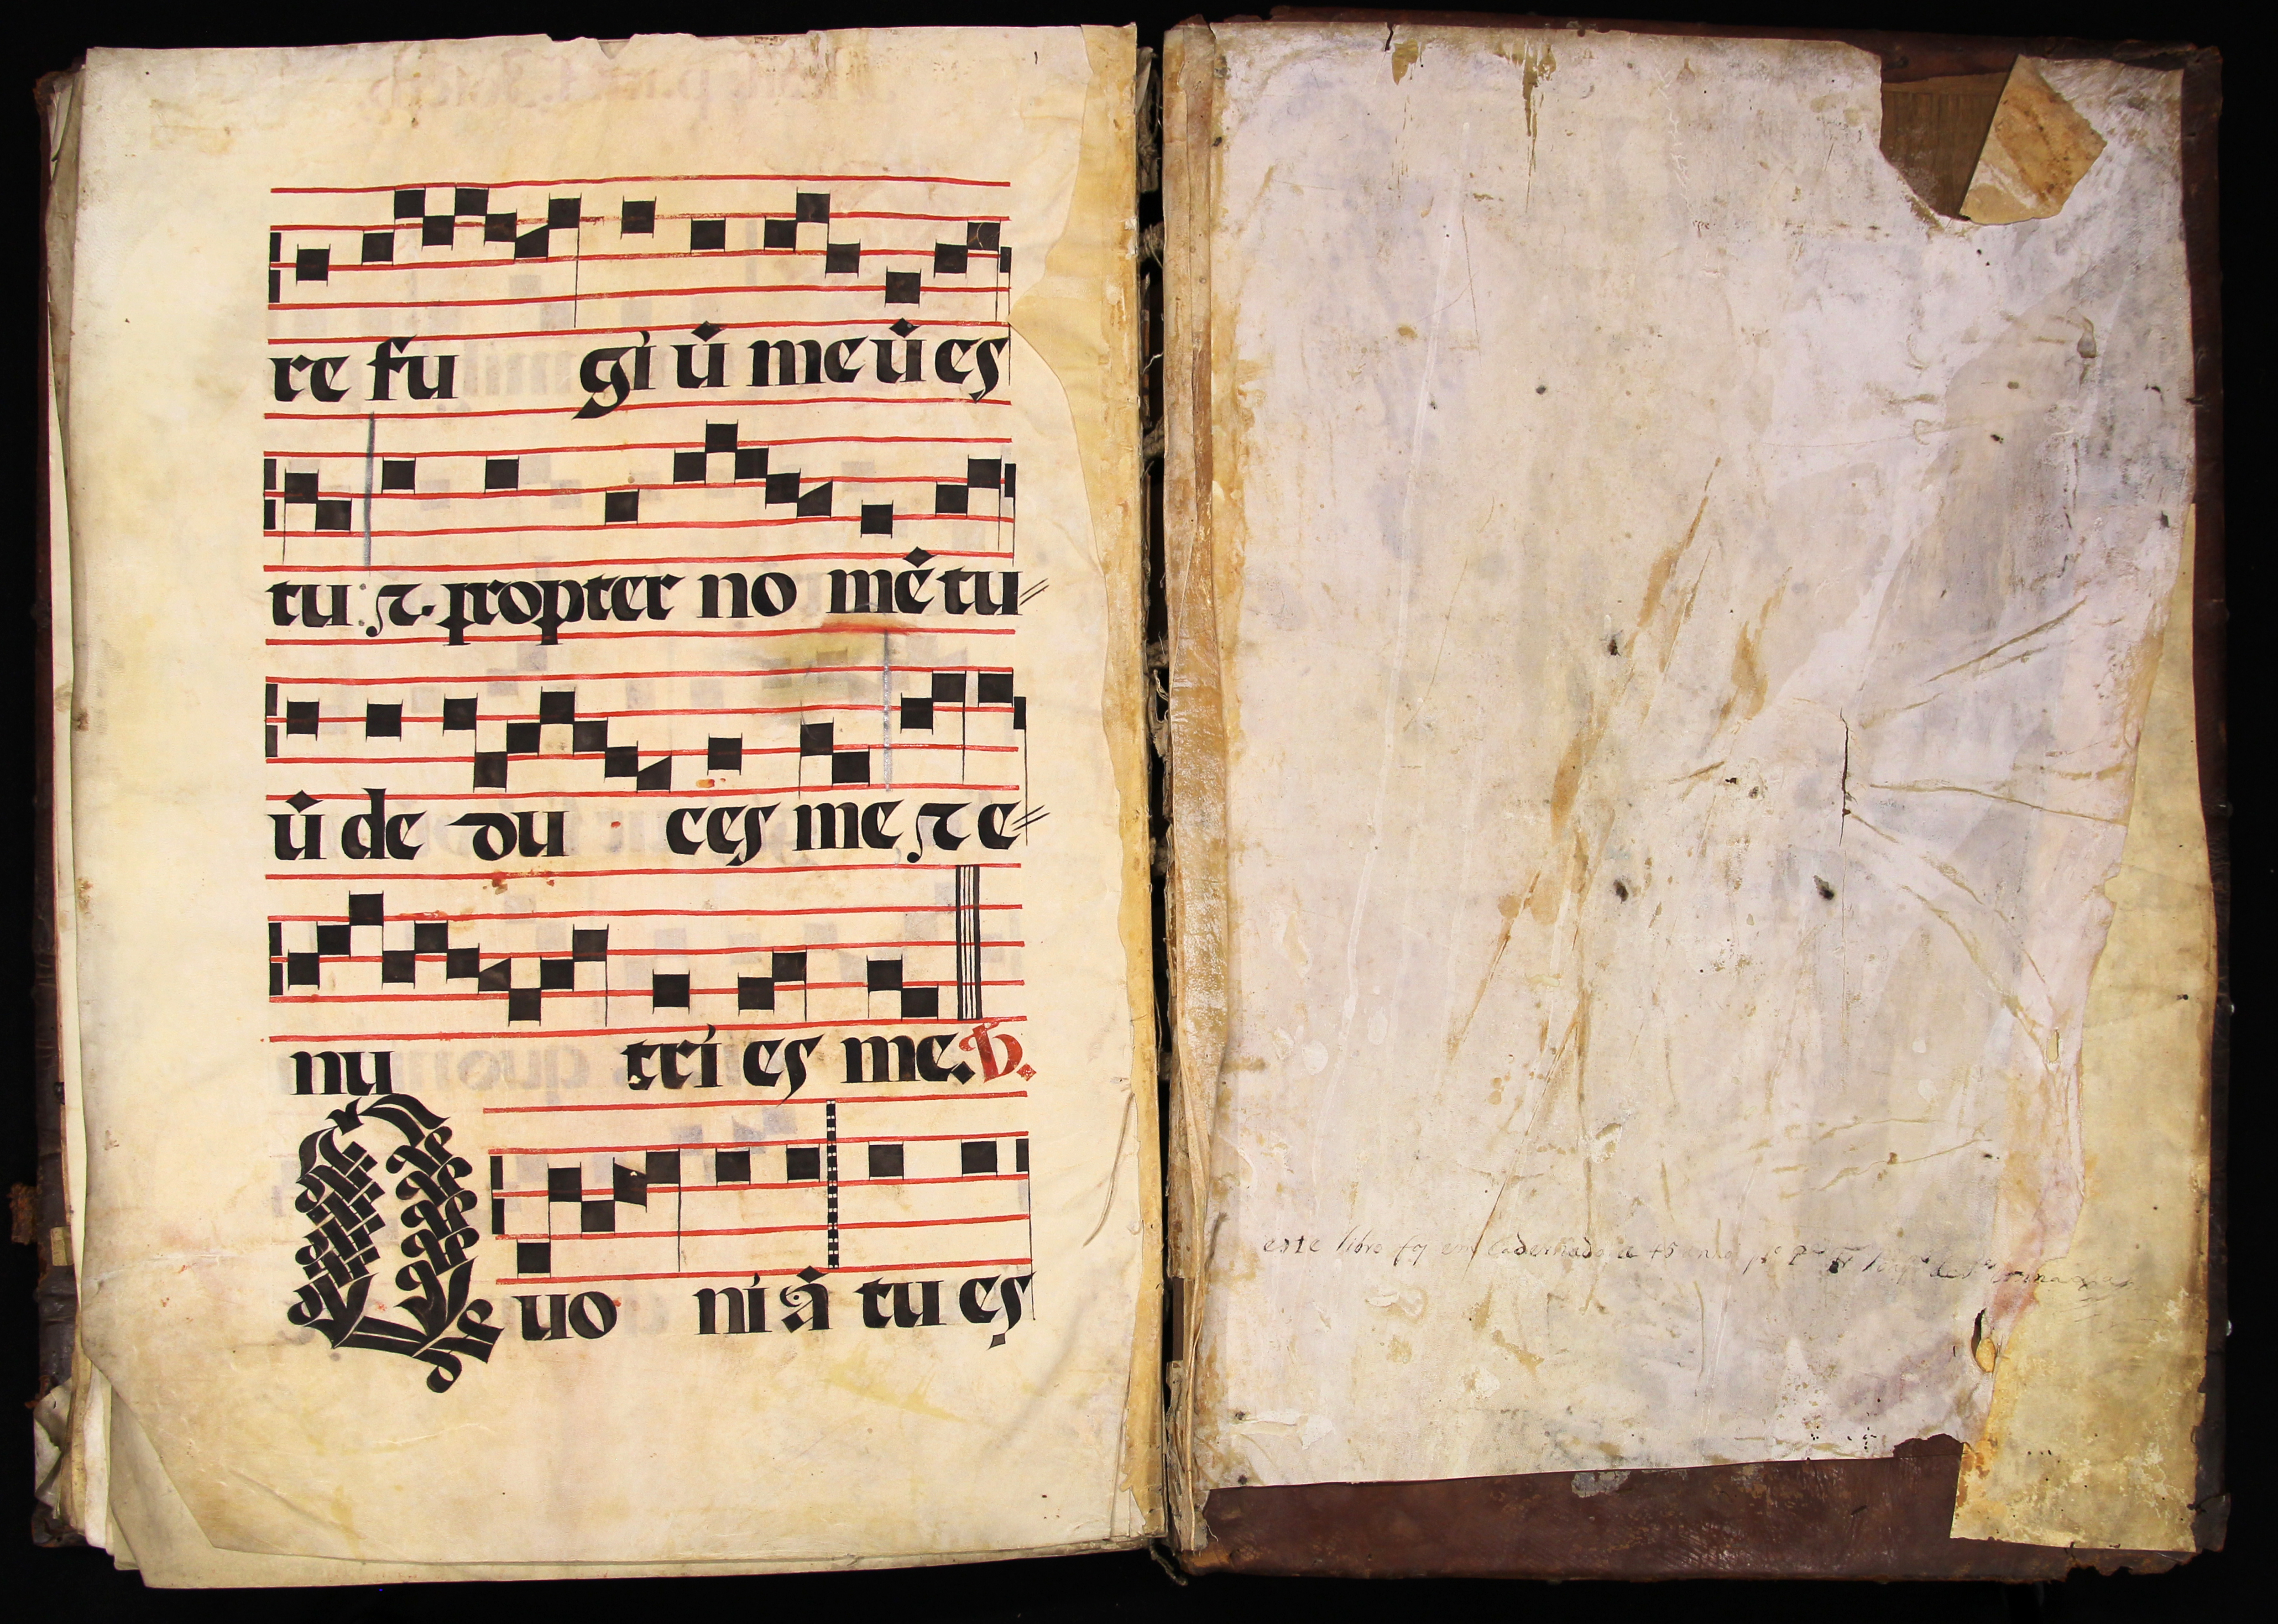 re fu gi ũ me ũ es
tu: ⁊. propter no mẽ tu⸗
ũ de du ces me ⁊ e⸗
nu tri es me. V.
Quo ni ã tu es
este libro foy em Cadernado